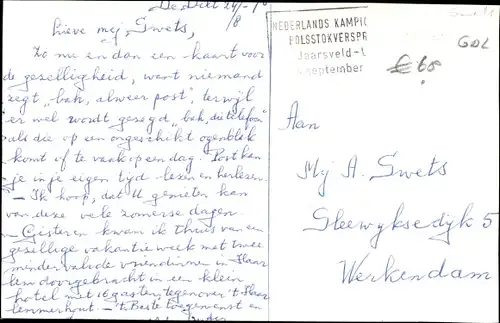 De Bilt 24/8
Lieve mej. Swets,
Zo nu en dan een kaart voor
de gezelligheid, want niemand
zegt "bah, alweer post", terwijl
er wel wordt gezegd "bah, die telefoon"
als die op een ongeschikt ogenblik
komt of te vaak op een dag. Post kan
je in je eigen tijd lezen en herlezen.
- Ik hoop, dat U genieten kan
van deze vele zomerse dagen
- Gisteren kwam ik thuis van een
gezellige vakantieweek met twee
minder valide vriendinnen in Haar
lem doorgebracht in een klein
hotel met 16 gasten, tegenover 't Haar
lemmerhout. - 't Beste toegewenst en
NEDERLANDS KAMPIO
POLSSTOKVERSPR
Jaarsveld-L
september
GDL
€ 65
Aan
Mej A. Swets
Sleewyksedijk 5
Werkendam